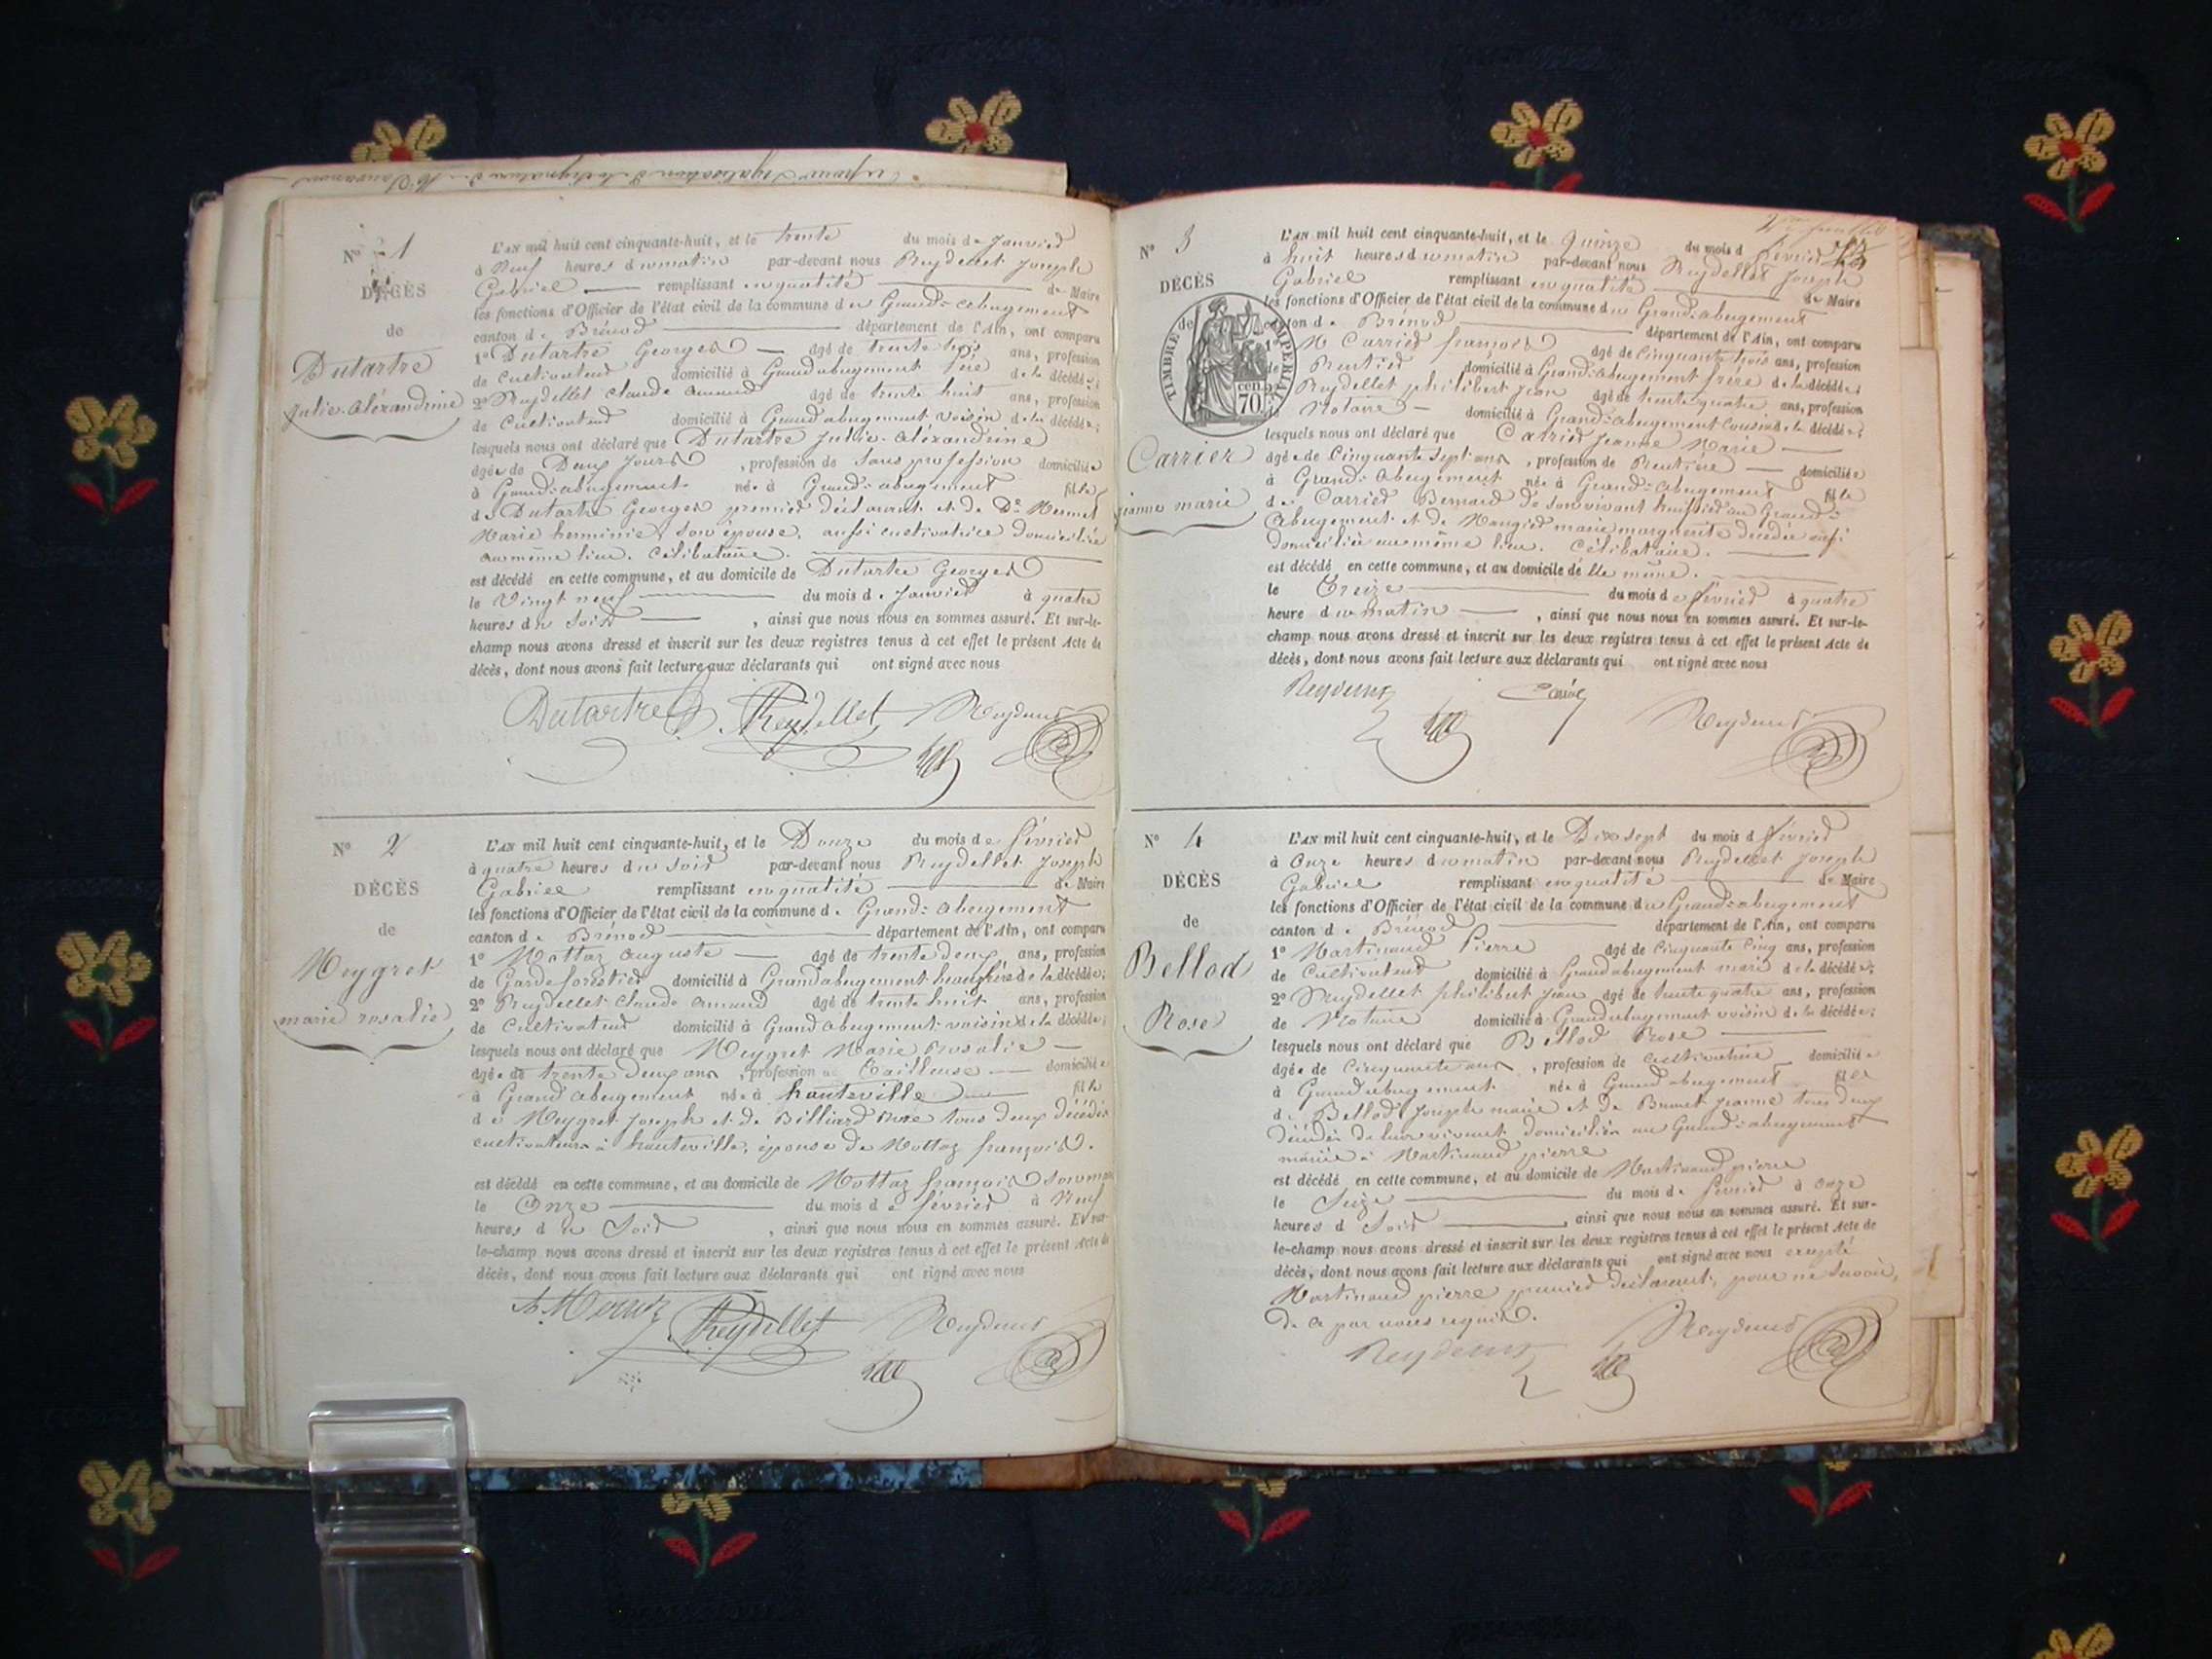 N° 1
DÉCÈS
de
Dutartre
Julie-Aléxandrine
L'AN mil huit cent cinquante-huit, et le trente du mois de Janvier
à Neuf heures du matin par-devant nous Reydellet Joseph
Gabriel remplissant en qualité de Maire
les fonctions d'Officier de l'état civil de la commune du Grand-abergement
canton de Brénod département de l'Ain, ont comparu
1° Dutartre Georges âgé de trente trois ans, profession
de Cultivateur domicilié à Grandabergement Père de la décédée;
2° Reydellet Claude Armand âgé de trente huit ans, profession
de Cultivateur domicilié à Grandabergement voisin de la décédée;
lesquels nous ont déclaré que Dutartre Julie-Aléxandrine
âgée de Deux Jours, profession de Sans profession domiciliée
à Grand-abergement née à Grand-abergement fille
de Dutartre Georges premier déclarant et de De
Marie herminie son épouse, aussi cultivatrice domiciliée
au même lieu. Célibataire.
est décédé en cette commune, et au domicile de Dutartre Georges
le Vingt neuf du mois de Janvier à quatre
heures du Soir, ainsi que nous nous en sommes assuré. Et sur-le-
champ nous avons dressé et inscrit sur les deux registres tenus à cet effet le présent Acte de
décès, dont nous avons fait lecture aux déclarants qui ont signé avec nous
Dutartre G. Reydellet
N° 2
DÉCÈS
de
Meygret
marie rosalie
L'AN mil huit cent cinquante-huit, et le Douze du mois de février
à quatre heures du Soir par-devant nous Reydellet Joseph
Gabriel remplissant en qualité de Maire
les fonctions d'Officier de l'état civil de la commune de Grand-abergement
canton de Brénod département de l'Ain, ont comparu
1° Mottaz Auguste âgé de trente deux ans, profession
de Garde forestier domicilié à Grandabergement beau frère de la décédée;
2° Reydellet Claude Armand âgé de trente huit ans, profession
de Cultivateur domicilié à Grandabergement voisin de la décédée;
lesquels nous ont déclaré que Meygret Marie Rosalie
âgée de trente Deux ans, profession de Tailleuse domiciliée
à Grand abergement née à hauteville fille
de Meygret Joseph et de Billiard tous deux décédés
cultivateurs à hauteville, épouse de Mottaz françois.
est décédé en cette commune, et au domicile de Mottaz françois son mari
le Onze du mois de février à Neuf
heures du Soir, ainsi que nous nous en sommes assuré. Et sur-
le-champ nous avons dressé et inscrit sur les deux registres tenus à cet effet le présent Acte de
décès, dont nous avons fait lecture aux déclarants qui ont signé avec nous
Reydellet
N° 3
DÉCÈS
de
TIMBRE IMPERIAL
70 cen.
Carrier
jeanne marie
L'AN mil huit cent cinquante-huit, et le Quinze du mois de février
à huit heures du matin par-devant nous Reydellet Joseph
Gabriel remplissant en qualité de Maire
les fonctions d'Officier de l'état civil de la commune du Grand-abergement
canton de Brénod département de l'Ain, ont comparu
1° M Carrier françois âgé de Cinquante trois ans, profession
de Rentier domicilié à Grand-abergement frère de la décédée;
Reydellet philibert Jean âgé de trente quatre ans, profession
de Notaire domicilié à Grand-abergement Cousin de la décédée;
lesquels nous ont déclaré que Carrier Jeanne Marie
âgée de Cinquante Sept ans, profession de Rentière domiciliée
à Grand-Abergement née à Grand-Abergement fille
de Carrier Bernard de son vivant huissier au Grand-
Abergement et de marie marguerite décédée aussi
domiciliée au même lieu. Célibataire.
est décédé en cette commune, et au domicile de Elle même.
le Treize du mois de février à quatre
heure du matin, ainsi que nous nous en sommes assuré. Et sur-le-
champ nous avons dressé et inscrit sur les deux registres tenus à cet effet le présent Acte de
décès, dont nous avons fait lecture aux déclarants qui ont signé avec nous
N° 4
DÉCÈS
de
Bellod
Rose
L'AN mil huit cent cinquante-huit, et le Dix sept du mois d février
à Onze heures du matin par-devant nous Reydellet Joseph
Gabriel remplissant en qualité de Maire
les fonctions d'Officier de l'état civil de la commune du Grand-abergement
canton de Brénod département de l'Ain, ont comparu
1° Martinand Pierre âgé de Cinquante Cinq ans, profession
de Cultivateur domicilié à Grandabergement mari de la décédée;
2° Reydellet philibert Jean âgé de trente quatre ans, profession
de Notaire domicilié à Grandabergement voisin de la décédée;
lesquels nous ont déclaré que Bellod Rose
âgée de Cinquante ans, profession de Cultivatrice domiciliée
à Grandabergement née à Grand abergement fille
de Bellod Joseph marie et de Brunet Jeanne tous deux
décédés de leur vivant domiciliés au Grand-abergement
mariée à Martinand pierre
est décédé en cette commune, et au domicile de Martinand pierre
le Seize du mois de février à onze
heures d Soir, ainsi que nous nous en sommes assuré. Et sur-
le-champ nous avons dressé et inscrit sur les deux registres tenus à cet effet le présent Acte de
décès, dont nous avons fait lecture aux déclarants qui ont signé avec nous excepté
Martinand pierre premier déclarant, pour ne savoir,
de ce par nous requis.